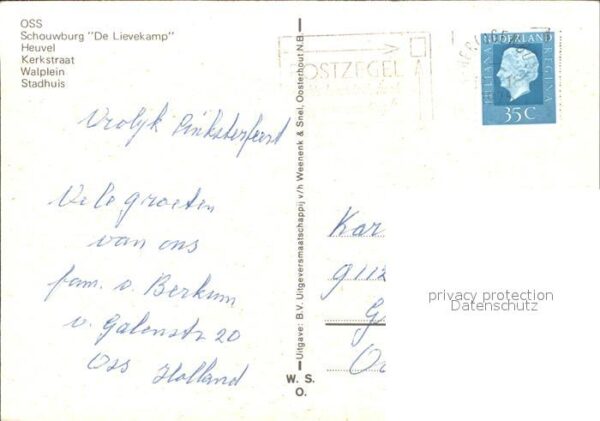 OSS
Schouwburg "De Lievekamp"
Heuvel
Kerkstraat
Walplein
Stadhuis
POSTZEGEL
NEDERLAND
JULIANA
REGINA
35 C
Vrolijk Pinksterfeest
Vele groeten
van ons
fam. v. Berkum
v. Galenstr 20
Oss Holland
Uitgave: B.V. Uitgeversmaatschappij v/h Weenenk & Snel, Oosterhout N.B.
W. S.
O.
Kar
9112
G
privacy protection
Datenschutz